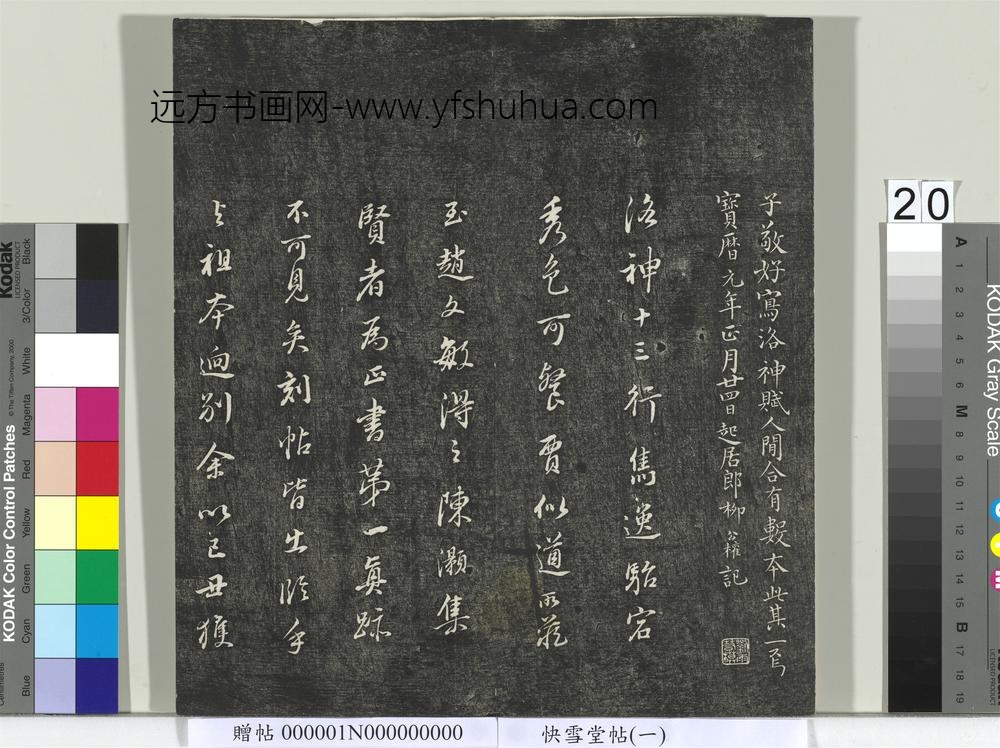 远方书画网-www.yfshuhua.com
子敬好寫洛神賦人間合有數本此其一焉
寶曆元年正月廿四日起居郎柳公權記
洛神十三行雋逸駘宕
秀色可餐賈似道所藏
至趙文敏得之陳灝集
賢者為正書第一真跡
不可見矣刻帖皆出臨手
与祖本迥別余以己丑獲
贈帖 000001N000000000
快雪堂帖(一)
20
Kodak
LICENSED PRODUCT
KODAK Color Control Patches
© The Tiffen Company, 2000
Black
3/Color
White
Magenta
Red
Yellow
Green
Cyan
Blue
Centimetres
KODAK Gray Scale
A 1 2 3 4 5 6 M 8 9 10 11 12 13 14 15 B 17 18 19
C
Y
M